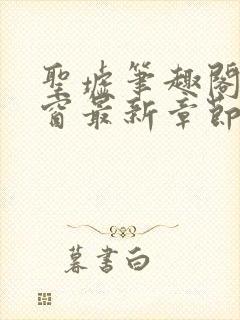 聖墟筆趣閣
窗最新章節
暮書白